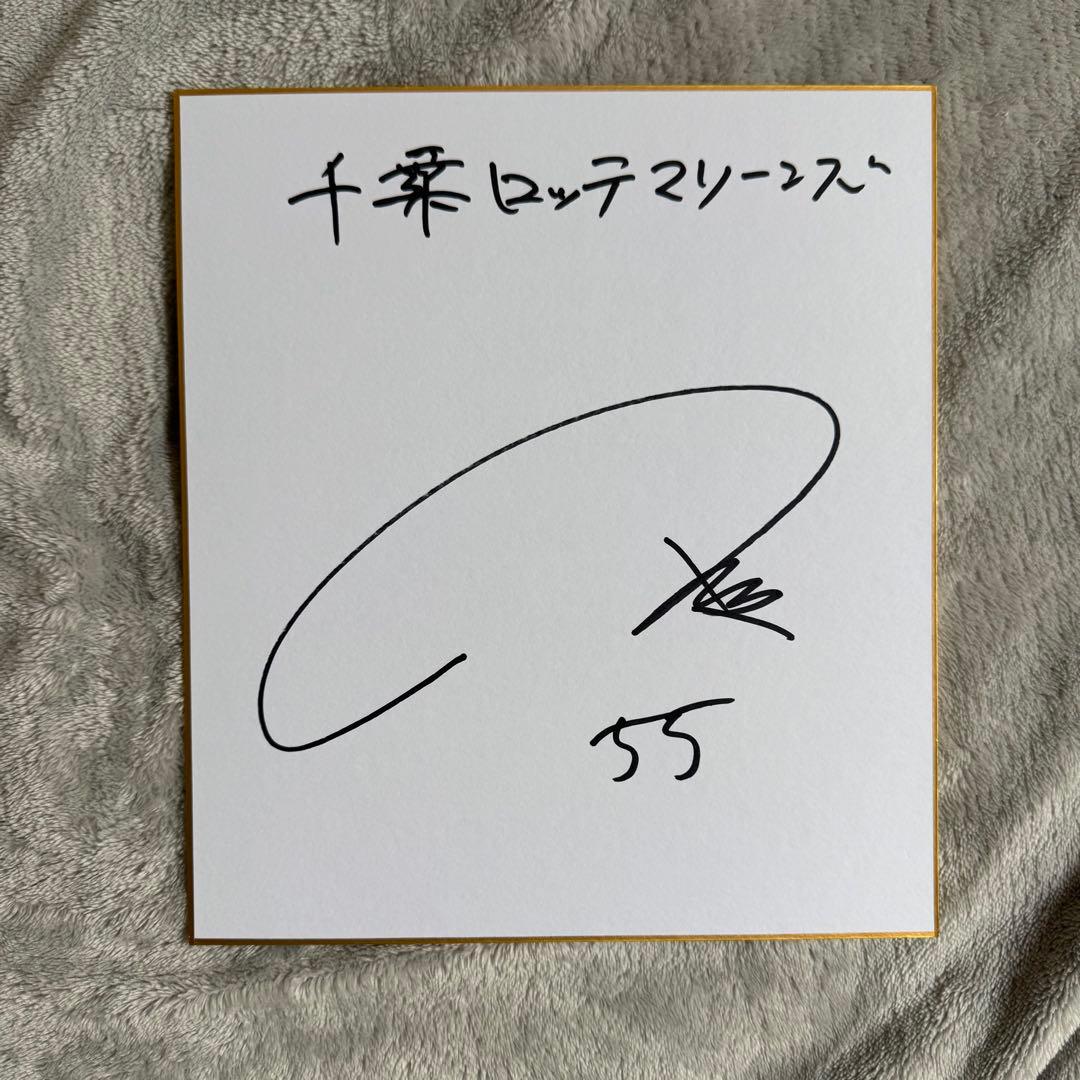 千葉ロッテマリーンズ
55